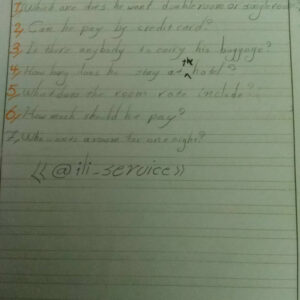 1, Which one does he want double room or single room
2, Can he pay by credit card?
3, Is there anybody to carry his baggage?
4, How long does he stay at the hotel?
5, What does the room rate include?
6, How much should he pay?
7, Who wants a room for one night?
«@ili_service»